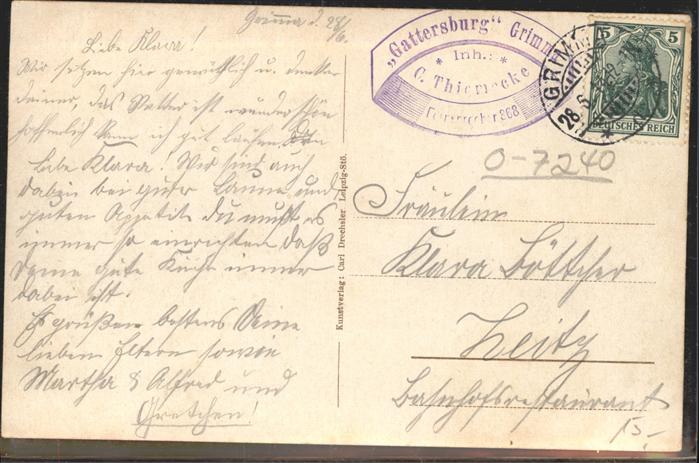 Grimma d. 28/6.
Liebe Klara!
Wir sitzen hier gemütlich u. denken
deiner, das Wetter ist wunderschön
hoffentlich kann ich gut laufen
Liebe Klara! Wir sind auch
dabei bei guter Laune und
guten Appetit du mußt es
immer so einrichten daß
Deine gute Küche immer
dabei ist.
Es grüßen bestens Deine
lieben Eltern sowie
Martha & Alfred und
Gretchen!
Kunstverlag: Carl Drechsler Leipzig-Stö.
„Gattersburg" Grimma
* Inh.: *
C. Thiernecke
Fernsprecher 368
GRIMMA
28.6.
5 5
DEUTSCHES REICH
O-7240
Fräulein
Klara Böttcher
Zeitz
Bahnhofsrestaurant
15,-